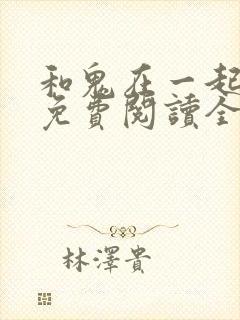 和鬼在一起
免費閱讀全
林澤貴